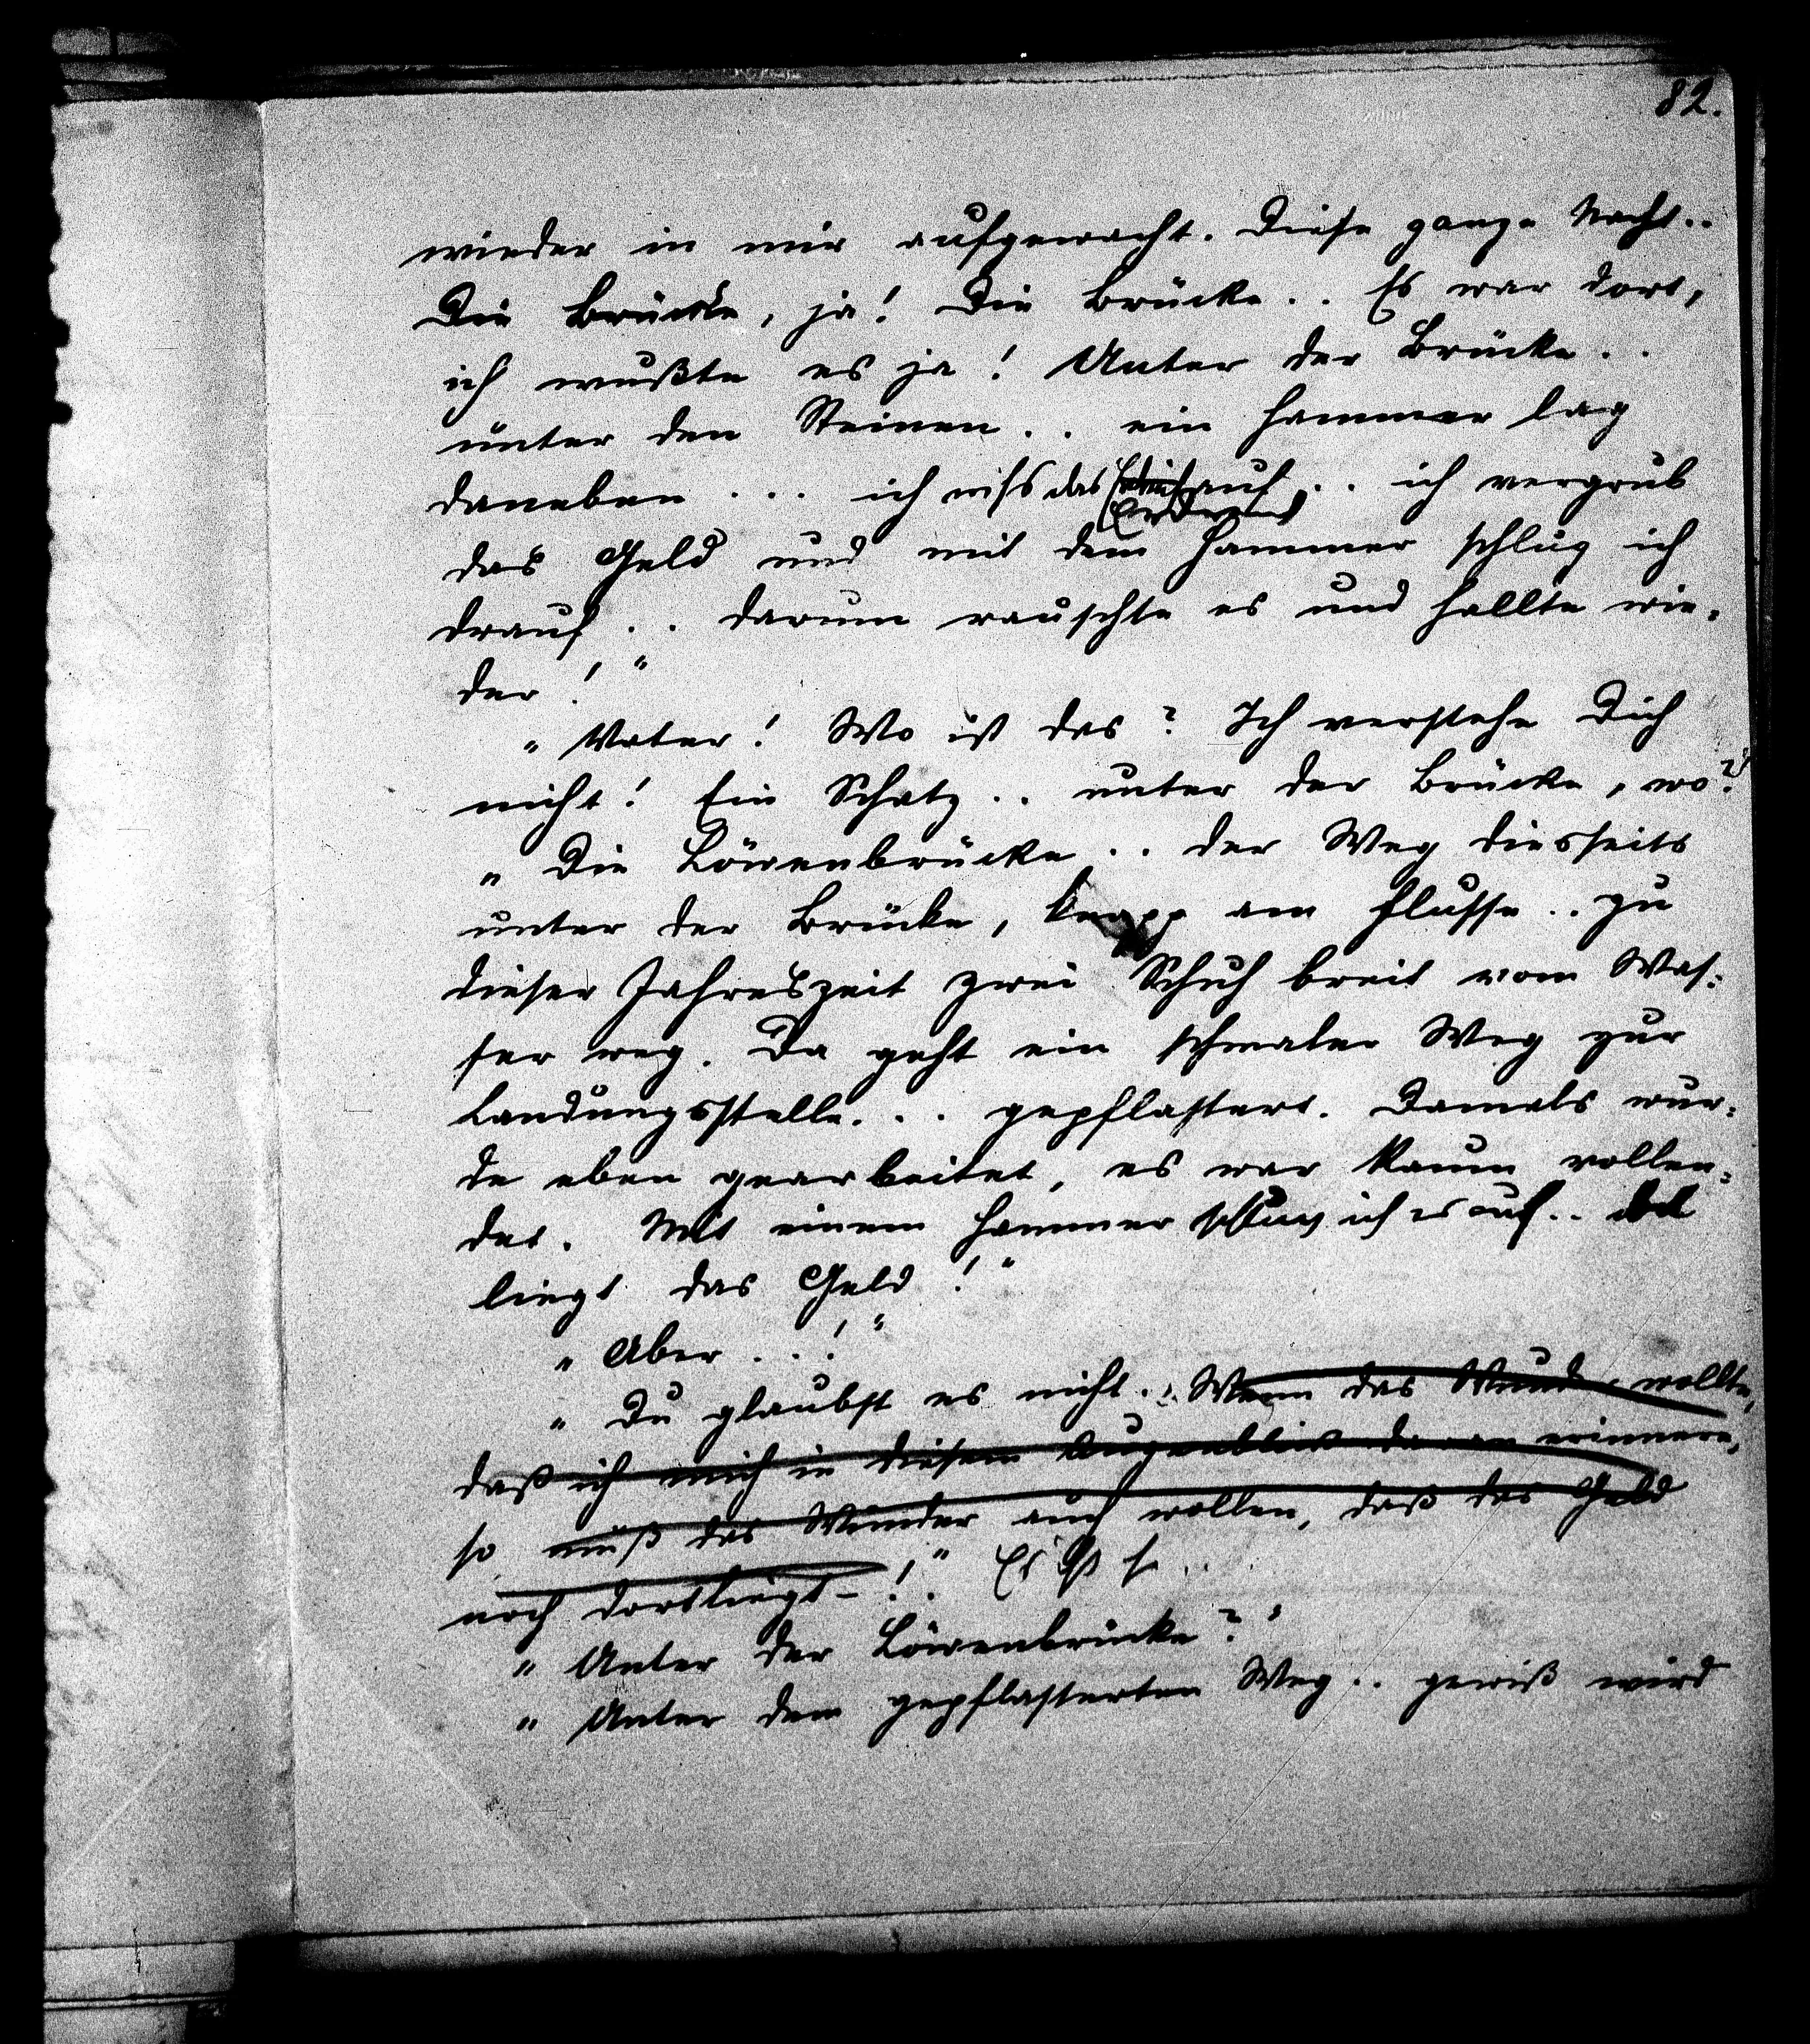 82.
wieder in mir aufgewacht. Diese ganze Nacht..
Die Brücke, ja! Die Brücke.. Es war dort,
ich wußte es ja! Unter der Brücke..
unter den Steinen.. ein Hammer lag
daneben... ich riss das Erdreich auf.. ich vergrub
das Geld und mit dem Hammer schlug ich
drauf.. darum rauschte es und hallte wie-
der!"
"Vater! Wo ist das? Ich verstehe Dich
nicht! Ein Schatz.. unter der Brücke, wo?"
"Die Löwenbrücke.. der Weg diesseits
unter der Brücke, knapp am Flusse.. zu
dieser Jahreszeit zwei Schuh breit vom Was-
ser weg. Da geht ein schmaler Weg zur
Landungsstelle... gepflastert. Damals wur-
de eben gearbeitet, es war kaum vollen-
det. Mit einem Hammer schlug ich es auf.. dort
liegt das Geld!"
"Aber...!"
"Du glaubst es nicht.. Wenn das Wunder wollte,
daß ich mich in diesem Augenblick daran erinnere,
so muß das Wunder auch wollen, daß das Geld
noch dortliegt-!" Es ist so..
"Unter der Löwenbrücke?"
"Unter dem gepflasterten Weg.. gewiß wird